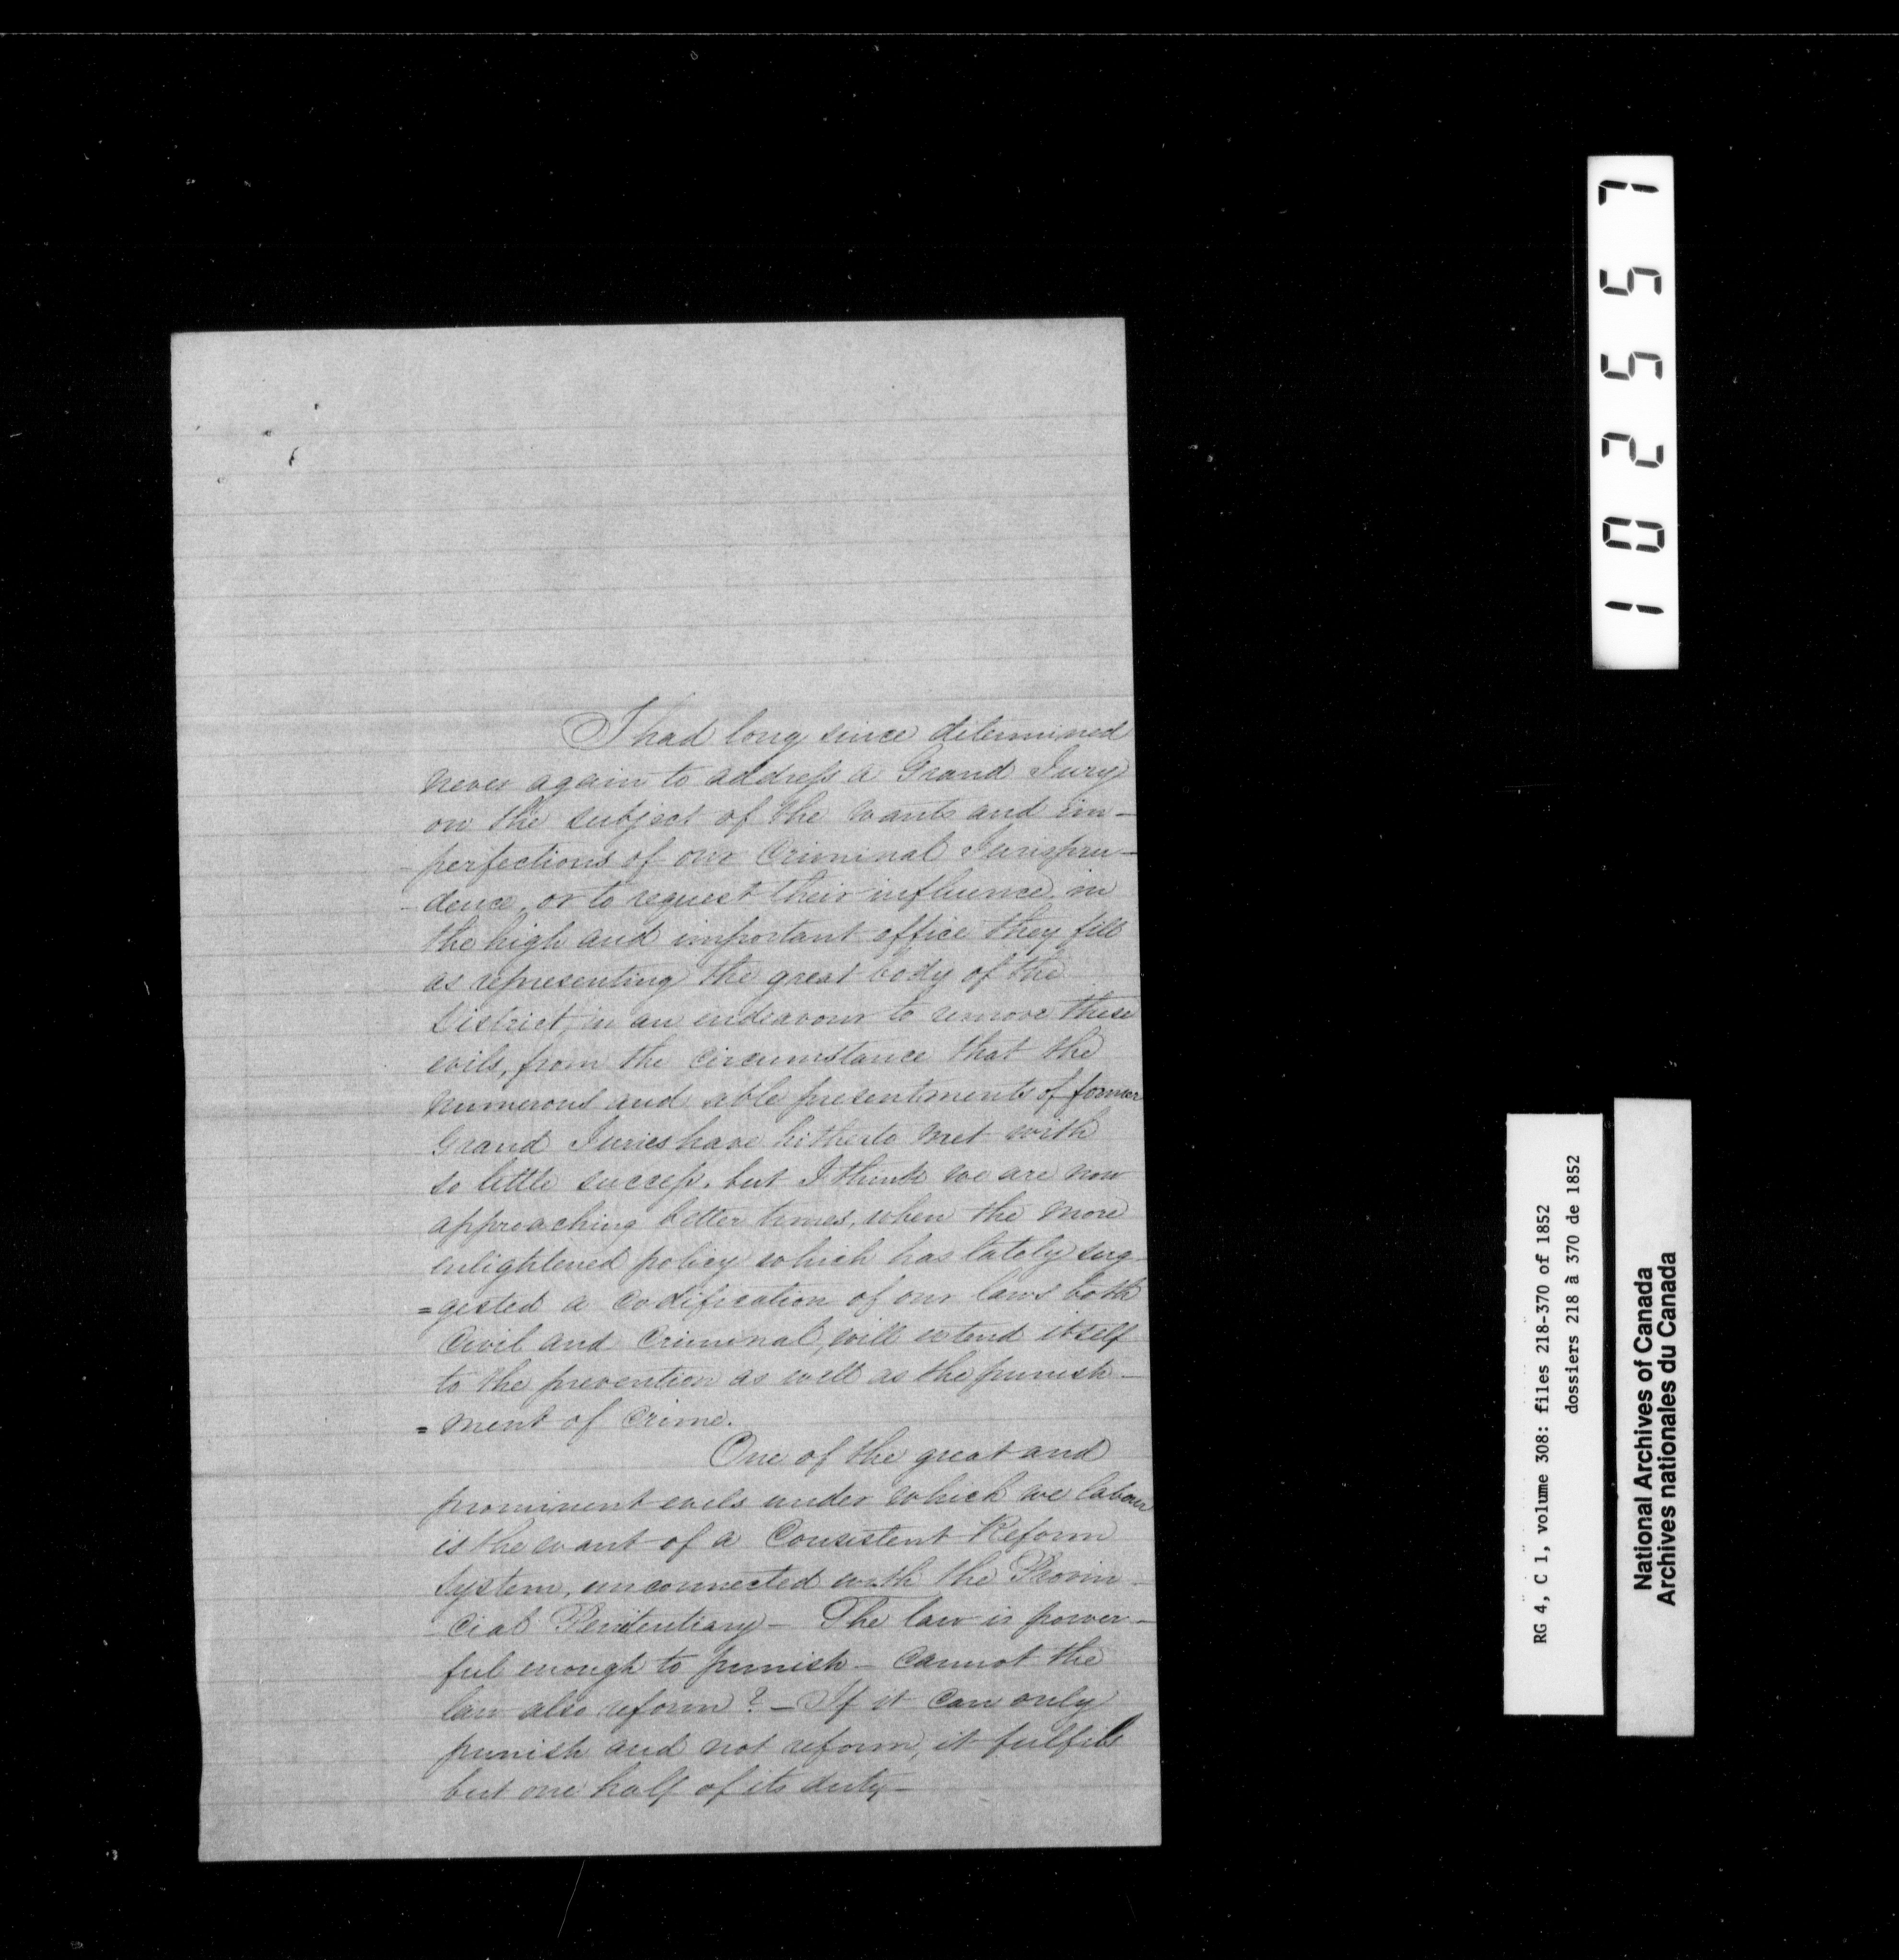 I had long since determined
never again to address a Grand Jury
on the subject of the wants and im-
perfections of our Criminal Jurispru-
dence, or to request their influence, in
the high and important office they fill
as representing the great body of the
District, in an endeavour to remove these
evils, from the circumstance that the
numerous and able presentments of former
Grand Juries have hitherto met with
so little success. but I think we are now
approaching better times, when the more
enlightened policy which has lately sug-
=gested a codification of our laws both
Civil and Criminal, will extend itself
to the prevention as well as the punish-
=ment of crime.
One of the great and
prominent evils under which we labour
is the want of a Consistent Reform
System, unconnected with the Provin-
cial Penitentiary - The law is power-
ful enough to punish - Cannot the
law also reform? - If it can only
punish and not reform, it fulfils
but one half of its duty -
102557
RG 4, C 1, volume 308: files 218-370 of 1852
dossiers 218 à 370 de 1852
National Archives of Canada
Archives nationales du Canada